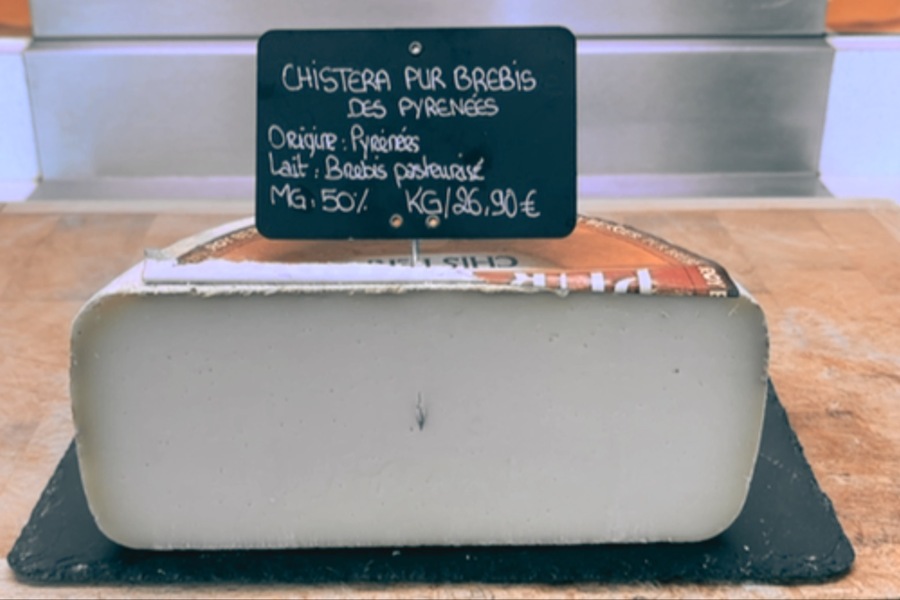 CHISTERA PUR BREBIS
DES PYRENÉES
Origine : Pyrénées
Lait : Brebis pasteurisé
MG : 50% KG/26,90€